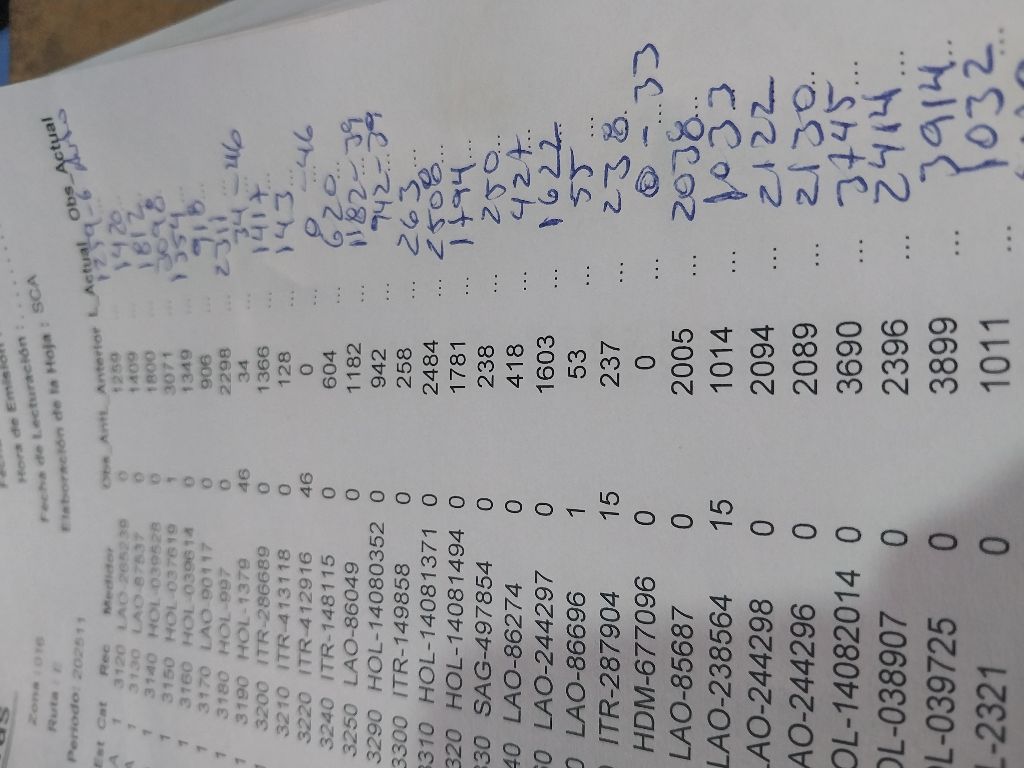 Hora de Emisión
Fecha de Lecturación : ....
Zona : 016
Ruta :
Elaboración de la Hoja : SCA
Periodo: 202511
Est Cat Rec Medidor Obs_Ant L_Anterior L_Actual Obs_Actual
A 1 3120 LAO-268239 0 1259 ...
A 1 3130 LAO-87837 0 1409 ... 1420
1 3140 HOL-039528 0 1800 ... 1812
1 3150 HOL-037619 1 3071 ... 3098
1 3160 HOL-039614 0 1349 ... 1354
1 3170 LAO-90117 0 906 ... 918
1 3180 HOL-997 0 2298 ... 2311
1 3190 HOL-1379 46 34 ... 34 - 46
3200 ITR-286689 0 1366 ... 1417
3210 ITR-413118 0 128 ... 143
3220 ITR-412916 46 0 ... 0 - 46
3240 ITR-148115 0 604 ... 620
3250 LAO-86049 0 1182 ... 1182 - 39
3290 HOL-14080352 0 942 ... 942 - 39
3300 ITR-149858 0 258 ... 263
3310 HOL-14081371 0 2484 ... 2508
320 HOL-14081494 0 1781 ... 1794
330 SAG-497854 0 238 ... 250
40 LAO-86274 0 418 ... 427
60 LAO-244297 0 1603 ... 1622
0 LAO-86696 1 53 ... 55
ITR-287904 15 237 ... 238
HDM-677096 0 0 ... 0 - 33
LAO-85687 0 2005 ... 2038
LAO-238564 15 1014 ... 1033
LAO-244298 0 2094 ... 2122
AO-244296 0 2089 ... 2130
OL-14082014 0 3690 ... 3745
OL-038907 0 2396 ... 2414
L-039725 0 3899 ... 3914
L-2321 0 1011 ... 1032